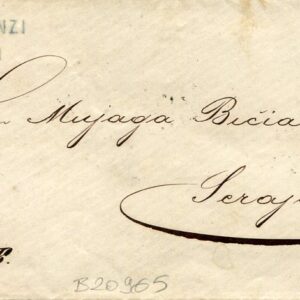 NZI
Mujaga Bičia
Seraj
B.
B20965